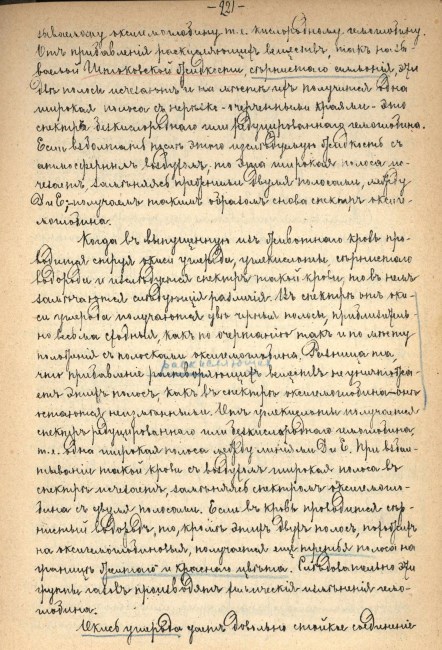 - 221 -
зываемому оксигемоглобину т.е. кислородному гемоглобину.
Отъ прибавленія раскисляющихъ веществъ, такъ назы-
ваемой Штоковской жидкости, сѣрнистаго аммонія, эти
двѣ полосы исчезаютъ и на мѣсто ихъ получается одна
широкая полоса съ нерѣзко-очерченными краями - это
спектръ безкислороднаго или редуцированнаго гемоглобина.
Если взболтать послѣ этого изслѣдуемую жидкость съ
атмосфернымъ воздухомъ, то эта широкая полоса ис-
чезаетъ, замѣняясь прежними двумя полосами, между
D и E; получаемъ такимъ образомъ снова спектръ оксиге-
моглобина.
Когда въ выпущенную изъ животнаго кровь про-
водится струя окиси углерода, углекислоты, сѣрнистаго
водорода и изслѣдуется спектръ такой крови, то въ немъ
замѣчаются слѣдующія различія. Въ спектрѣ отъ оки-
си углерода получаются двѣ черныя полосы, приблизитель-
но весьма сходныя, какъ по очертанію такъ и по мѣсту
положенія съ полосками оксигемоглобина. Разница та,
раскисляющихъ
что прибавленіе растворяющихъ веществъ не уничтожа-
етъ этихъ полосъ какъ въ спектрѣ оксигемоглобина - они
остаются неизмѣнными. Отъ углекислоты получается
спектръ редуцированнаго или безкислороднаго гемоглобина,
т.е. одна широкая полоса между линіями D и E. При взбал-
тываніи такой крови съ воздухомъ широкая полоса въ
спектрѣ исчезаетъ, замѣняясь спектромъ оксигемогло-
бина съ двумя полосами. Если въ кровь проводится сѣр-
нистый водородъ, то, кромѣ этихъ двухъ полосъ, похожихъ
на оксигемоглобиновыя, получается еще третья полоса на
границѣ желтаго и краснаго цвѣта. Слѣдовательно эти
группы газовъ производятъ химическія измѣненія гемо-
глобина.
Окись углерода даетъ довольно стойкое соединеніе